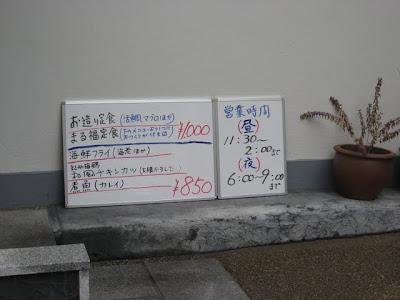 お造り定食(活鯛,マグロほか)
まる福定食
¥1,000
海鮮フライ(海老ほか)
チキンカツ
煮魚(カレイ)
¥850
営業時間
(昼)
11:30〜
2:00まで
(夜)
6:00〜9:00
まで